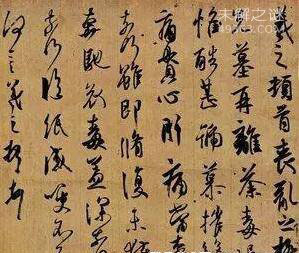 未解之谜
羲之頓首喪亂之極
墓再離荼毒追
惟酷甚號慕摧絕
痛貫心肝痛當奈
奈何雖即脩復未獲
奔馳哀毒益深奈
奈何臨紙感哽不
何言羲之頓首